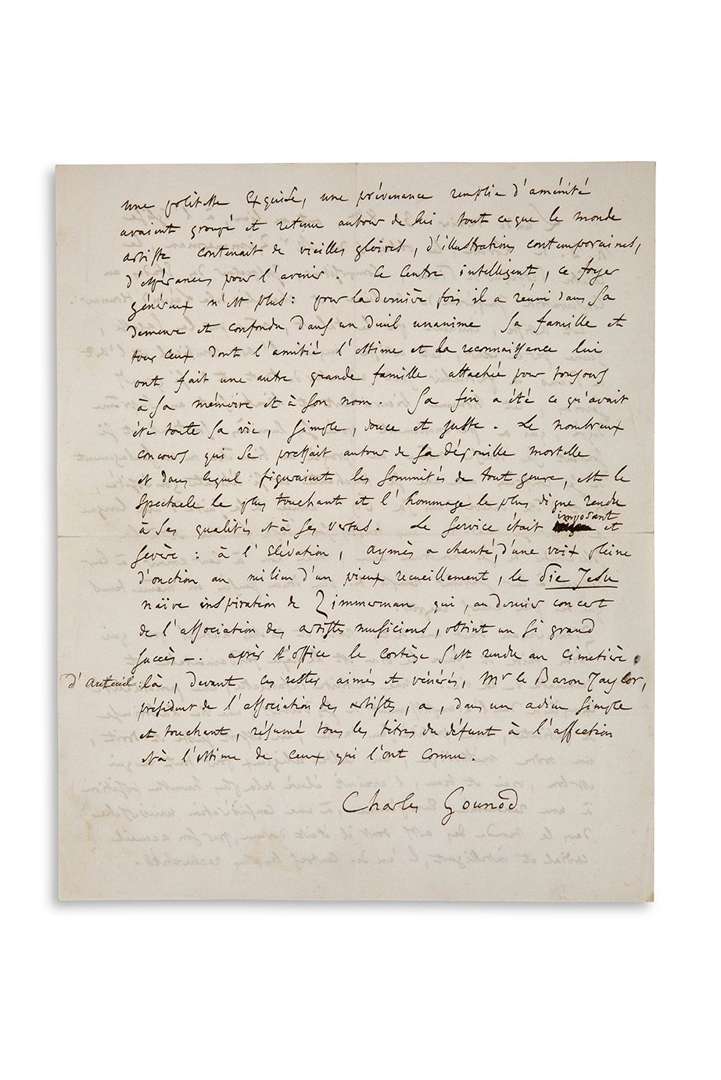 une politesse exquise, une prévenance remplie d'aménité
avaient groupé et retenu autour de lui tout ce que le monde
artiste contenait de vieilles gloires, d'illustrations contemporaines,
d'espérances pour l'avenir. Ce centre intelligent, ce foyer
généreux n'est plus : pour la dernière fois il a réuni dans sa
demeure et confondu dans un deuil unanime sa famille et
tous ceux dont l'amitié l'estime et la reconnaissance lui
ont fait une autre grande famille attachée pour toujours
à sa mémoire et à son nom. Sa fin a été ce qu'avait
été toute sa vie, simple, douce et juste. Le nombreux
concours qui se pressait autour de sa dépouille mortelle
et dans lequel figuraient les sommités de tout genre, est le
spectacle le plus touchant et l'hommage le plus digne rendu
à ses qualités et à ses vertus. Le service était imposant et
sévère : à l'Elévation, Aymès a chanté, d'une voix pleine
d'onction au milieu d'un pieux recueillement, le Pie Jesu
naïve inspiration de Zimmerman qui, au dernier concert
de l'association des artistes musiciens, obtint un si grand
succès —. après l'office le cortège s'est rendu au cimetière
d'Auteuil : là, devant ces restes aimés et vénérés, Mr le Baron Taylor,
président de l'association des artistes, a, dans un adieu simple
et touchant, résumé tous les titres du défunt à l'affection
et à l'estime de ceux qui l'ont connu.
Charles Gounod